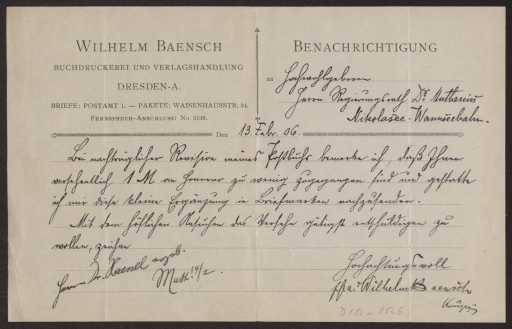 WILHELM BAENSCH
BUCHDRUCKEREI UND VERLAGSHANDLUNG
DRESDEN-A.
BRIEFE: POSTAMT 1. — PAKETE: WAISENHAUSSTR. 34.
FERNSPRECH-ANSCHLUSS: No.
BENACHRICHTIGUNG
AN
Hochwohlgeboren
Herrn Regierungsrath Dr.
Nikolassee-Wannseebahn.
DEN 13. Febr. 06.
Bei nachträglicher Revision meines Postbuchs bemerke ich, daß Ihnen
versehentlich 1 M an Honorar zu wenig zugegangen sind und gestatte
ich mir diese kleine Ergänzung in Briefmarken nachzusenden.
Mit dem höflichen Ersuchen das Versehen gütigst entschuldigen zu
wollen, zeichne
Hochachtungsvoll
Wilhelm Baensch
Herrn Dr.